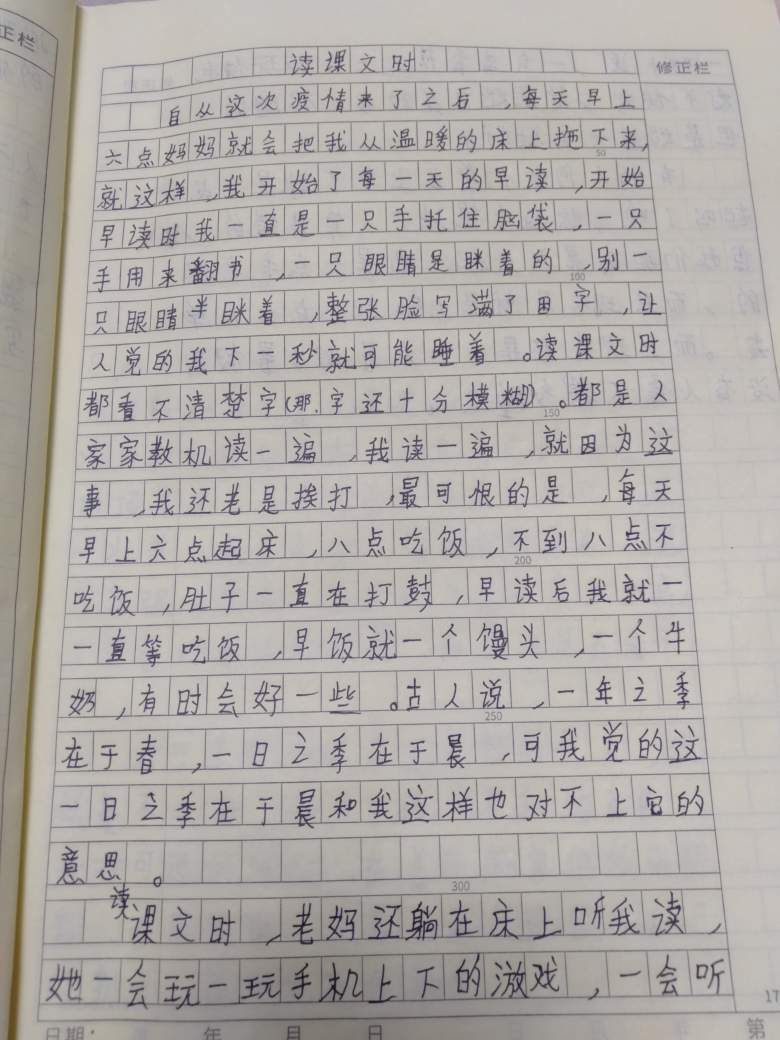 正栏
读课文时
修正栏
自从这次疫情来了之后，每天早上
六点妈妈就会把我从温暖的床上拖下来，
50
就这样，我开始了每一天的早读，开始
早读时我一直是一只手托住脑袋，一只
手用来翻书，一只眼睛是眯着的，别一
100
只眼睛半眯着，整张脸写满了困字，让
人觉的我下一秒就可能睡着。读课文时
都看不清楚字（那字还十分模糊）。都是人
150
家家教机读一遍，我读一遍，就因为这
事，我还老是挨打，最可恨的是，每天
早上六点起床，八点吃饭，不到八点不
200
吃饭，肚子一直在打鼓，早读后我就一
一直等吃饭，早饭就一个馒头，一个牛
奶，有时会好一些。古人说，一年之季
250
在于春，一日之季在于晨，可我觉的这
一日之季在于晨和我这样也对不上它的
意思。
300
读课文时，老妈还躺在床上听我读，
她一会玩一玩手机上下的游戏，一会听
17
日期： 年 月 日 第